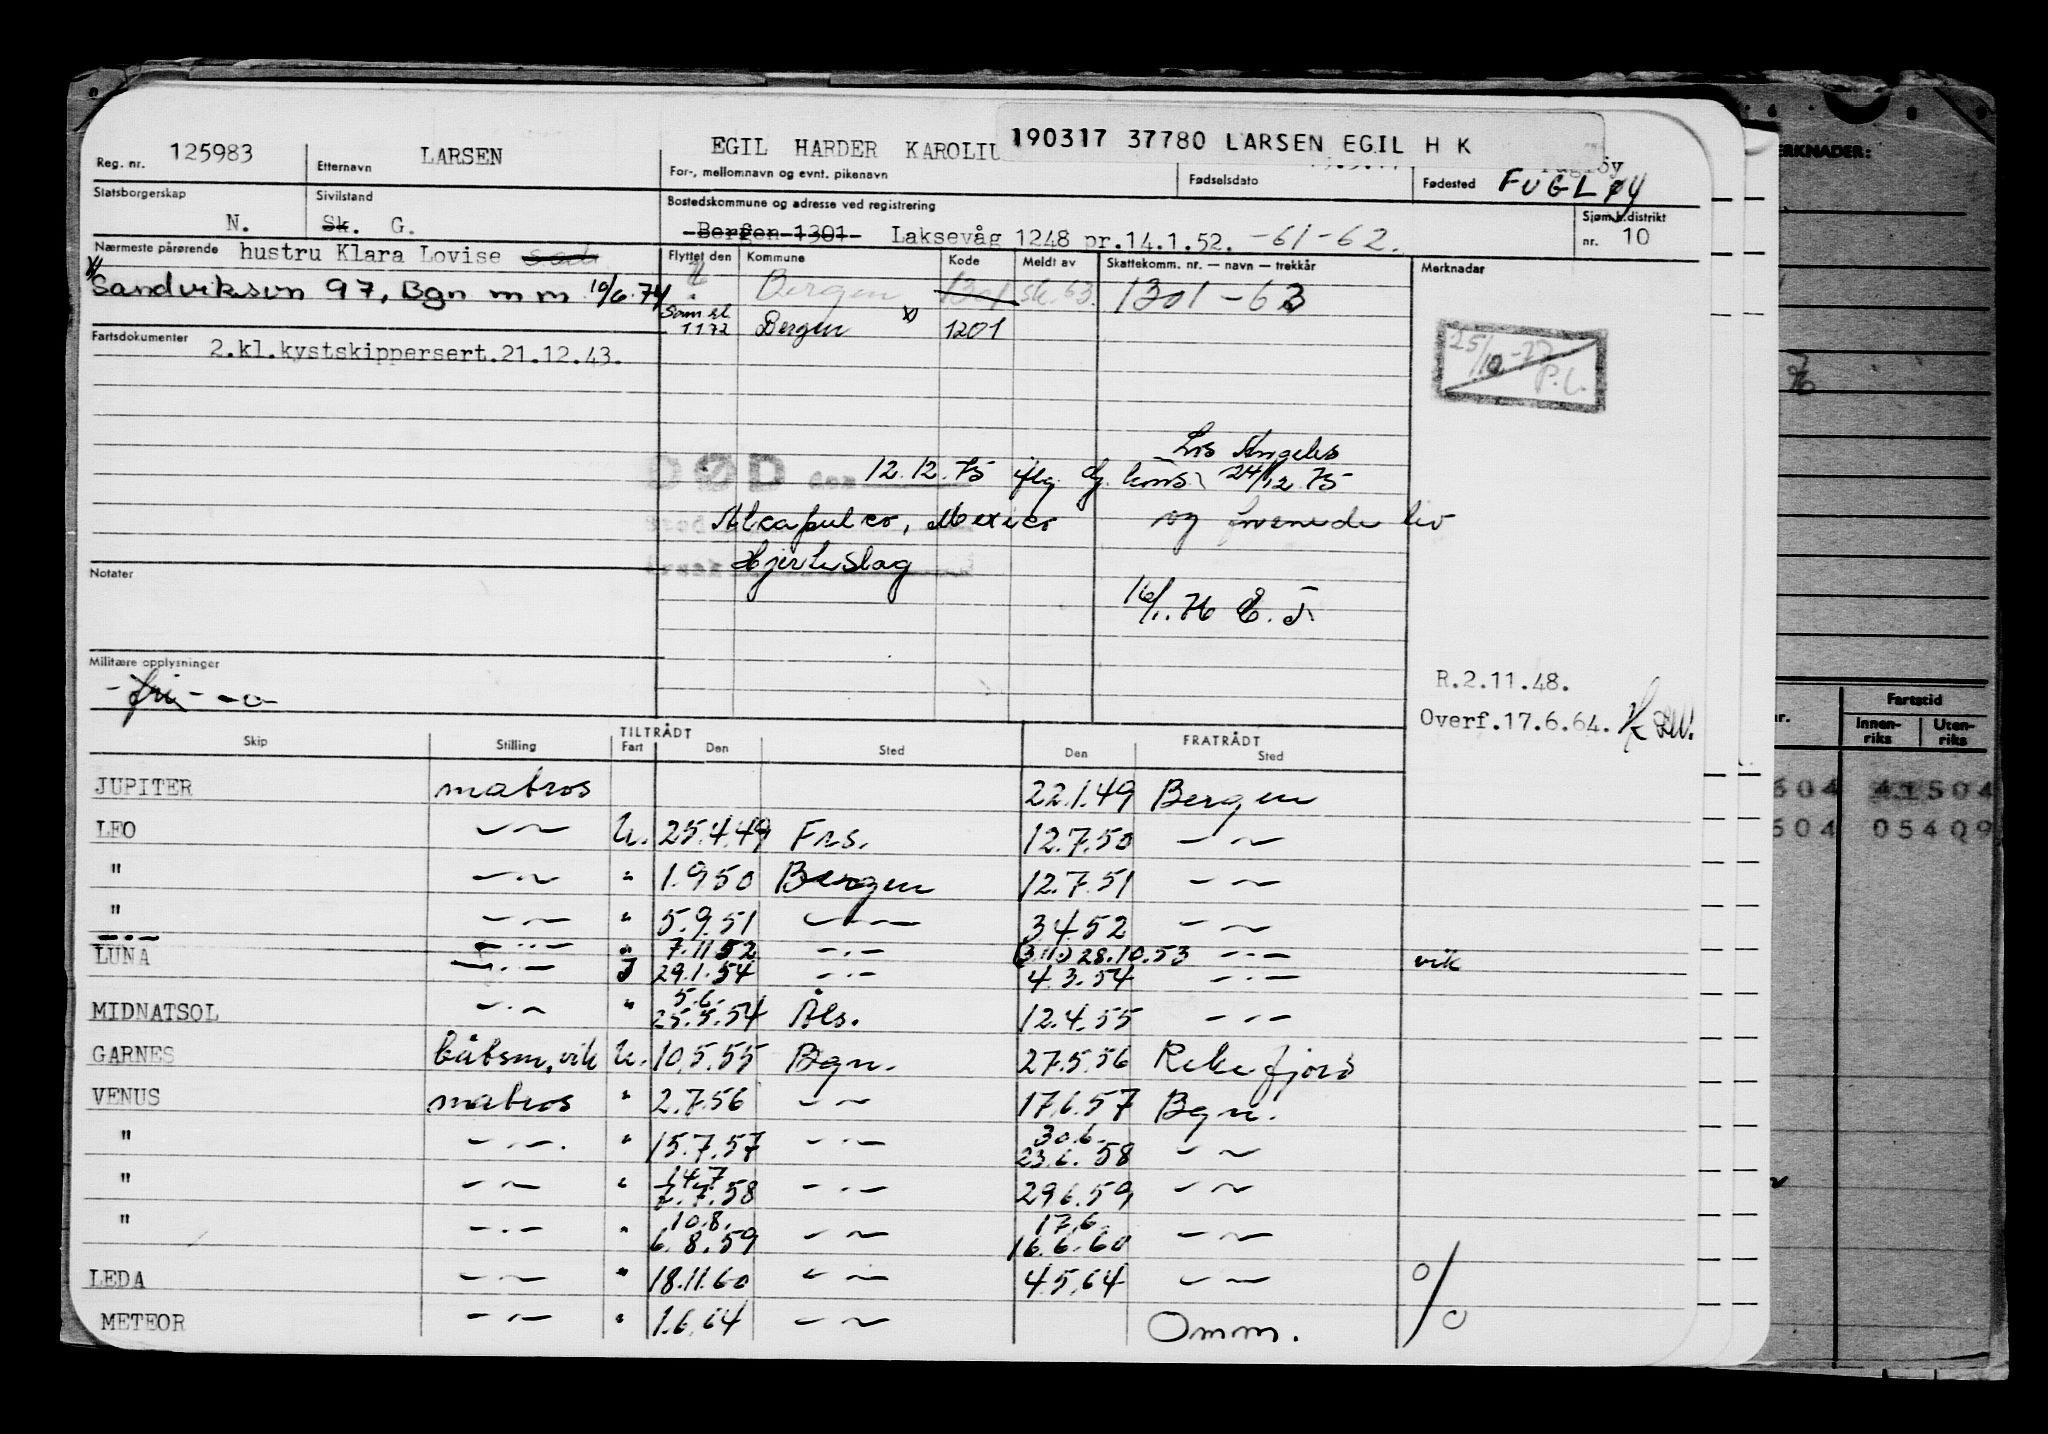 190317 37780 LARSEN EGIL H K
Reg. nr. 125983 Etternavn LARSEN EGIL HARDER KAROLIU
For-, mellomnavn og evnt. pikenavn Fødselsdato Fødested FUGLØY
Statsborgerskap N. Sivilstand Sk. G.
Bostedskommune og adresse ved registrering
Bergen 1301 Laksevåg 1248 pr.14.1.52. -61-62.
Sjøm.h.distrikt nr. 10
Nærmeste pårørende hustru Klara Lovise
Sandviksvn 97, Bgn m m 10/6.74
Flyttet den Kommune Kode Meldt av Skattekomm. nr. — navn — trekkår Merknader
Bergen 1301 sk.63. 1301-63
1.1.72 Bergen 1201
25/10-77 P.L.
Fartsdokumenter 2.kl.kystskippersert.21.12.43.
DØD den 12.12.75 iflg. kons. Los Angeles 24/12 75
Alkapulco, Mexico og
Hjerteslag
16/1.76 E.T.
Notater
Militære opplysninger
-fri-
R.2.11.48.
Overf.17.6.64.
TILTRÅDT FRATRÅDT
Skip Stilling Fart Den Sted Den Sted
JUPITER matros 22.1.49 Bergen
LEO —~ U. 25.4.49 Fns. 12.7.50 —~
" —~ " 1.9.50 Bergen 12.7.51 —~
" —~ " 5.9.51 —~ 3.4.52 —~
LUNA —.— " 7.11.52 —.— (3.11.) 28.10.53 —.— vik
—.— I 29.1.54 —.— 4.3.54 —.—
MIDNATSOL —.— " 5.6. 25.5.54 Åls. 12.4.55 —.—
GARNES båtsm, vik U. 10.5.55 Bgn. 27.5.56 Rekefjord
VENUS matros " 2.7.56 —~ 17.6.57 Bgn.
" —.— " 15.7.57 —.— 30.6. 23.6.58 —~
" —~ " 14.7. 7.7.58 —.— 29.6.59 —~
" —.— " 10.8. 6.8.59 —~ 17.6. 16.6.60 —~
LEDA —~ " 18.11.60 —~ 4.5.64 —~
METEOR —.— " 1.6.64 —~ Omm. %
ERKNADER:
Fartstid
Innenriks Utenriks
604 41504
604 05409